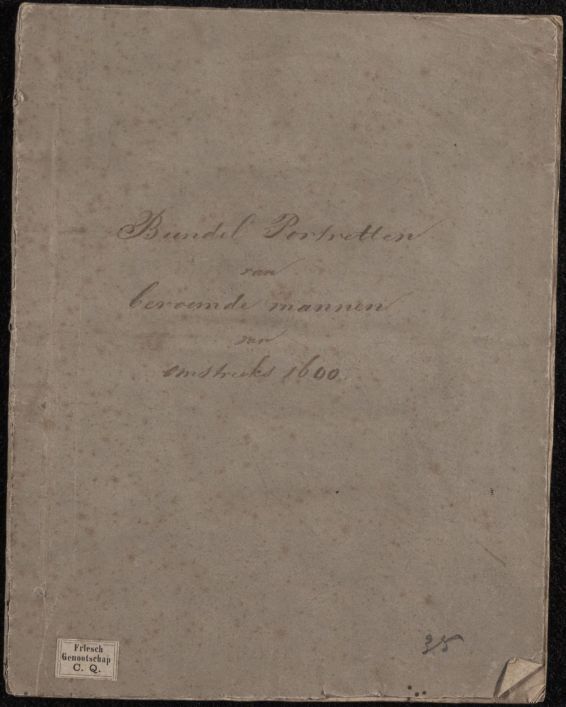 Bundel Portretten
van
beroemde mannen
van
omstreeks 1600.
35
Friesch
Genootschap
C. Q.